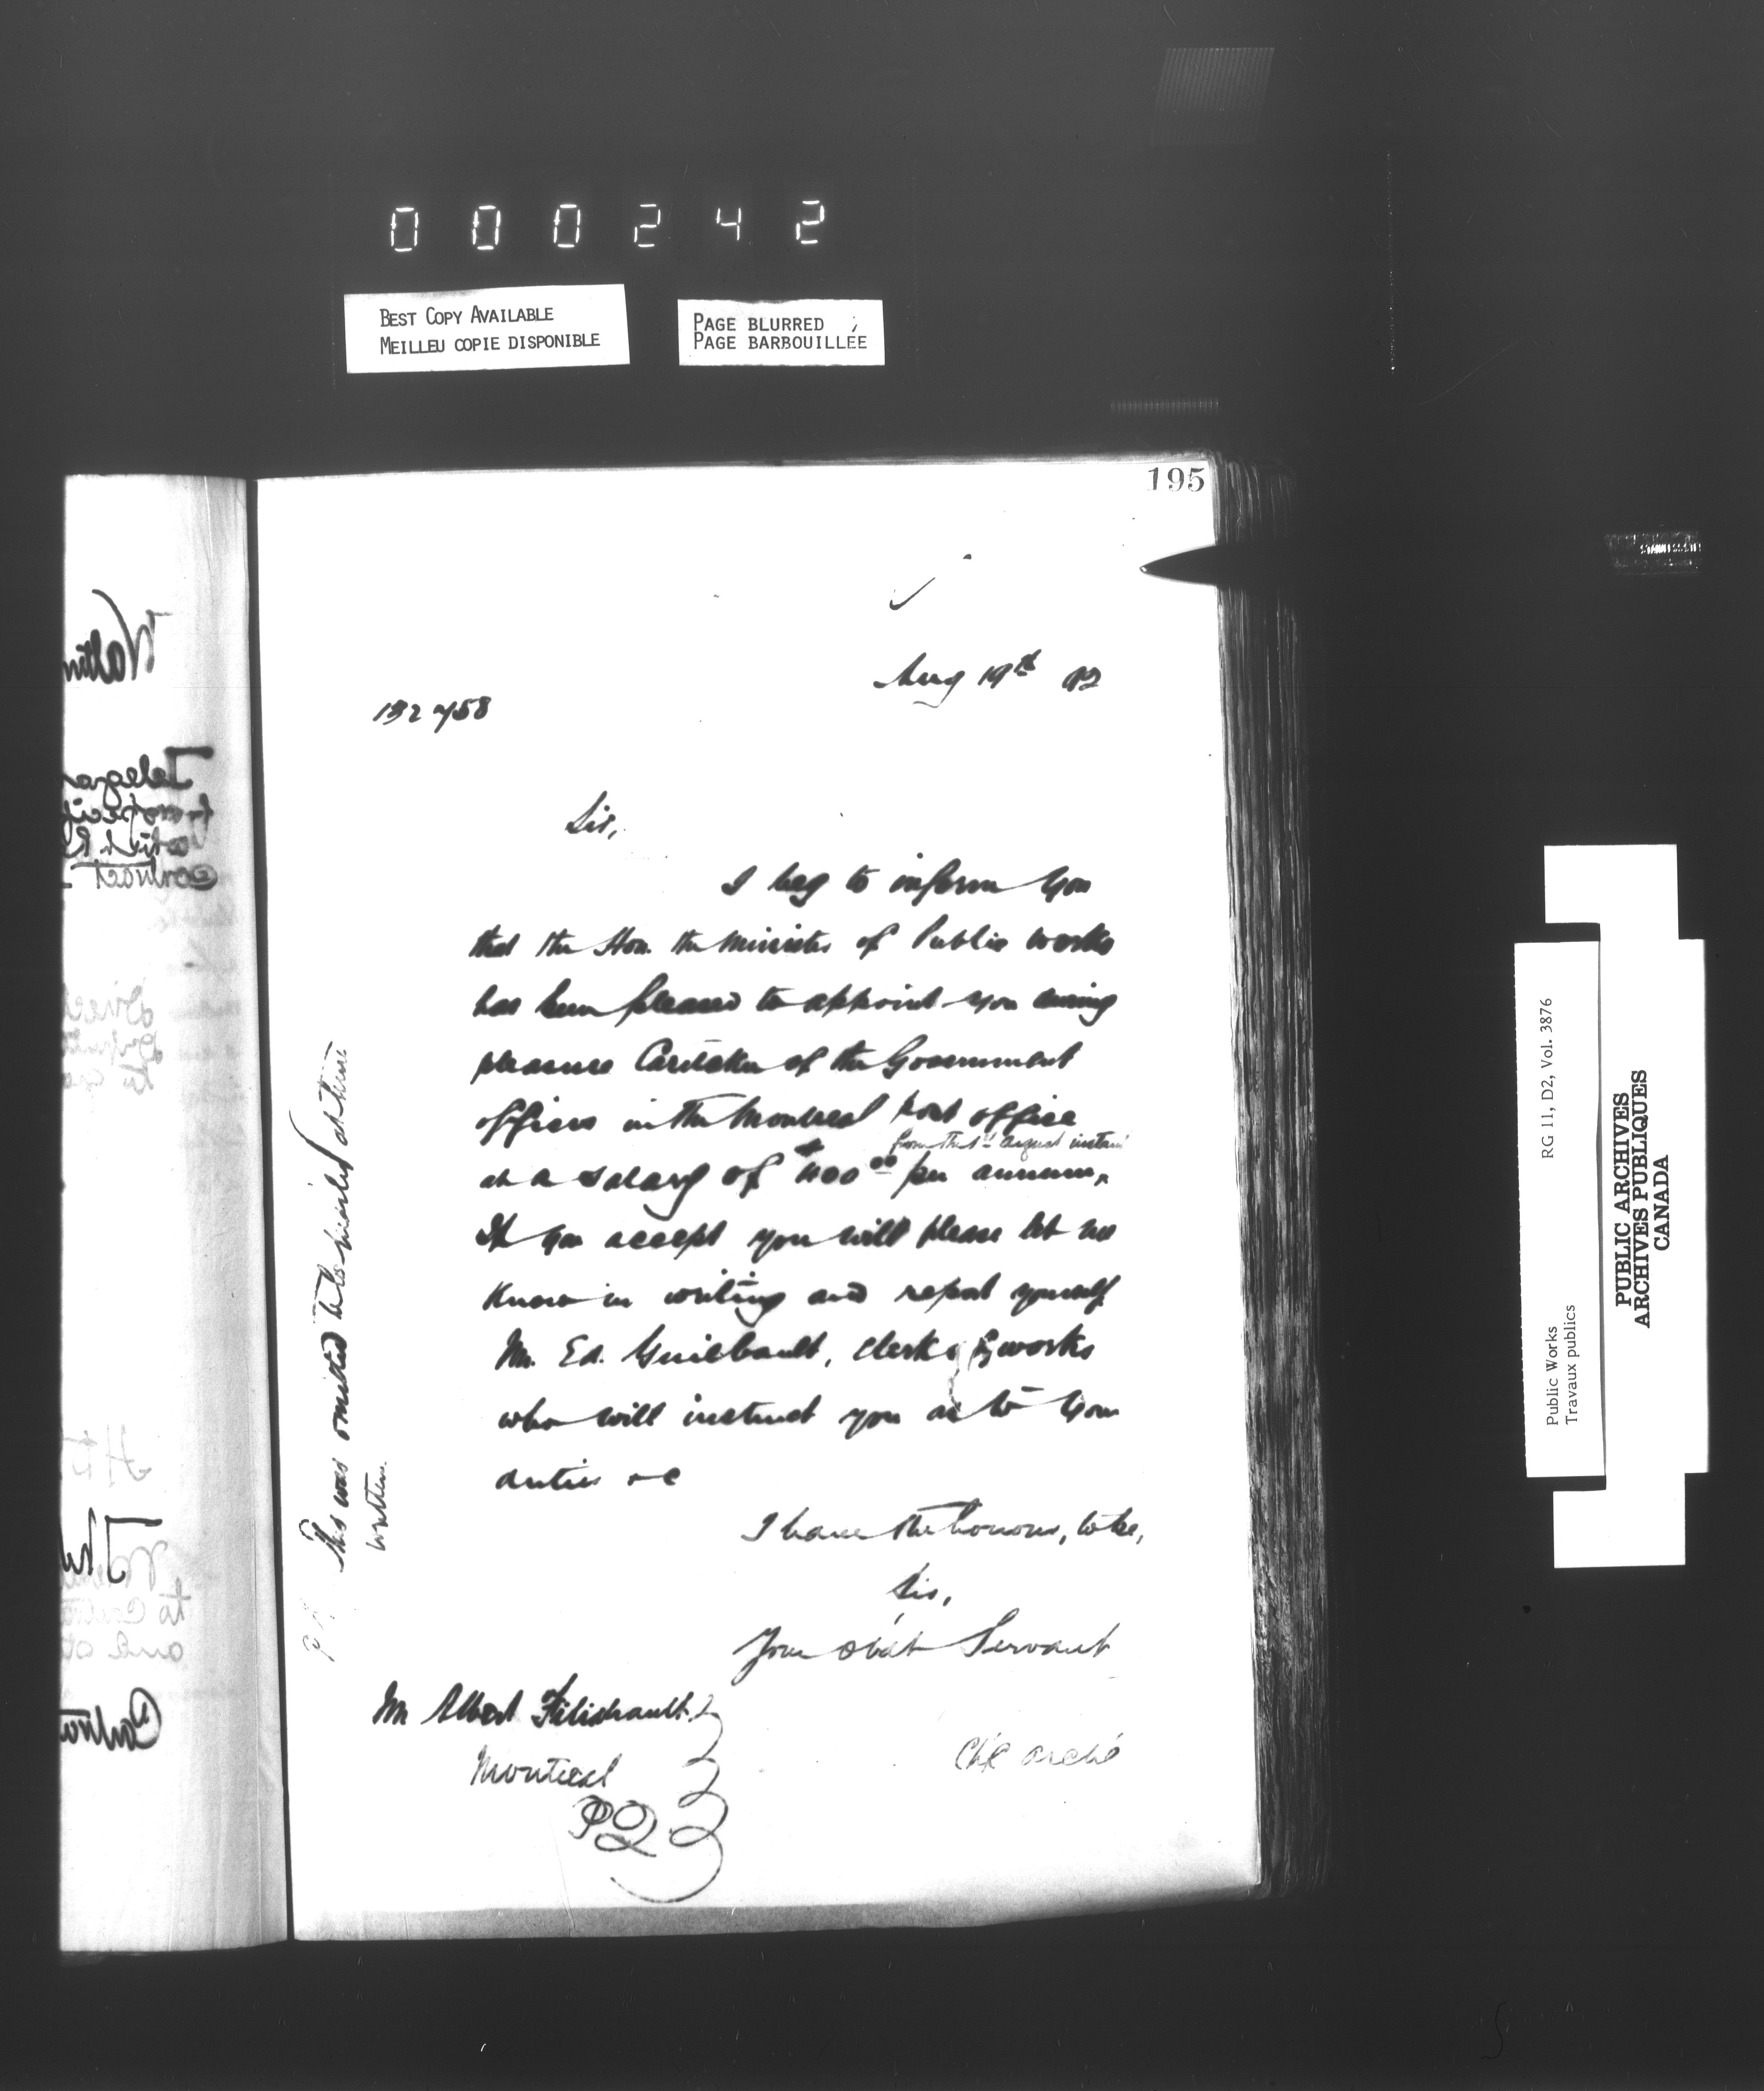 000242
BEST COPY AVAILABLE
MEILLEU COPIE DISPONIBLE
PAGE BLURRED ;
PAGE BARBOUILLÉE
195
Aug 19th 92
132758
Sir,
I beg to inform you
that the Hon. the Minister of Public Works
has been pleased to appoint you during
pleasure Caretaker of the Government
offices in the Montreal post office
from the 1st August instant
at a salary of $400 00 per annum,
If you accept you will please let me
know in writing and report yourself
Mr. Ed. Guilbault, clerk of works
who will instruct you as to your
duties &c
I have the honour, to be,
Sir,
Your obdt Servant
Mr Albert
Montreal
PQ
This was omitted to be mailed at time
written.
RG 11, D2, Vol. 3876
Public Works
Travaux publics
PUBLIC ARCHIVES
ARCHIVES PUBLIQUES
CANADA